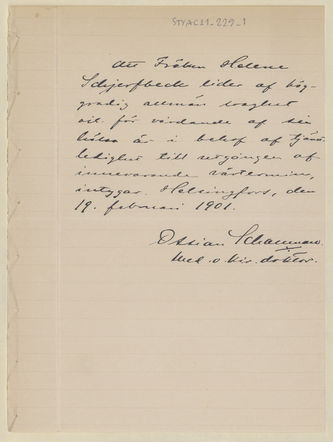 STYAC11_229_1
Att Fröken Helene
Schjerfbeck lider af hög-
gradig allmän svaghet
och för vårdande af sin
hälsa är i behof af tjänst-
ledighet till utgången af
innevarande vårtermin,
intygar. Helsingfors, den
19. februari 1901.
Ossian Schauman.
med. o. kir. doktor.